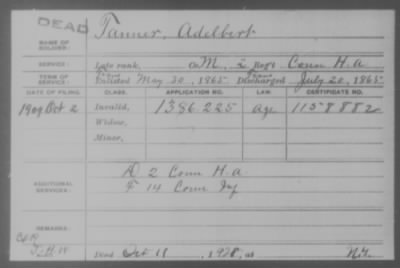 DEAD
Tanner, Adelbert
NAME OF SOLDIER:
SERVICE: Late rank, Co M, 2 Reg't Conn H.A
TERM OF SERVICE: Enlisted May 30, 1865 Discharged July 20, 1865
DATE OF FILING. CLASS. APPLICATION NO. LAW. CERTIFICATE NO.
1909 Oct 2 Invalid, 1386225 Age 1158882
Widow,
Minor,
D 2 Conn H.A
ADDITIONAL SERVICES: F 14 Conn Inf
REMARKS:
Died Oct 11, 1928, at N.Y.